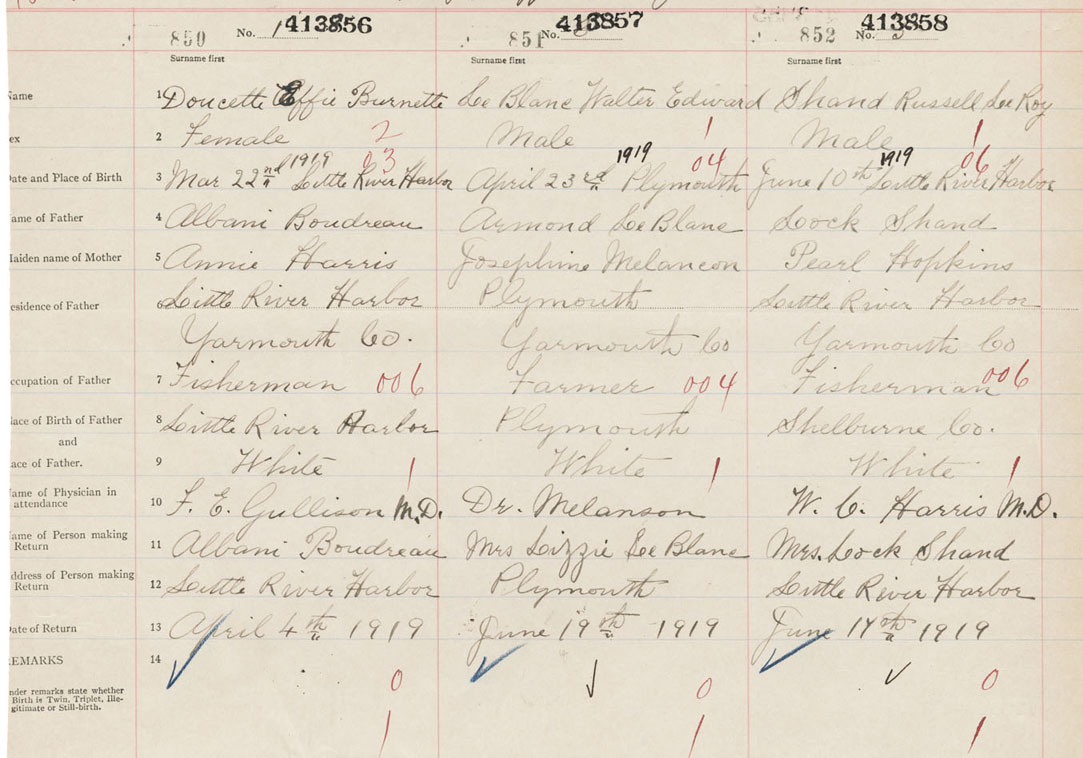 850 No. 1 413856 851 No. 2 413857 852 No. 3 413858
Surname first Surname first Surname first
Name 1 Doucette Effie Burnette Le Blanc Walter Edward Shand Russell Le Roy
ex 2 Female 2 Male 1 Male 1
Date and Place of Birth 3 Mar 22nd 1919 Little River Harbor 03 April 23rd 1919 Plymouth 04 June 10th 1919 Little River Harbor 06
ame of Father 4 Albani Boudreau Armond Le Blanc Lock Shand
Maiden name of Mother 5 Annie Harris Josephine Melancon Pearl Hopkins
esidence of Father 6 Little River Harbor Plymouth Little River Harbor
Yarmouth Co. Yarmouth Co Yarmouth Co
ccupation of Father 7 Fisherman 006 Farmer 004 Fisherman 006
lace of Birth of Father 8 Little River Harbor Plymouth Shelburne Co.
and
ace of Father. 9 White 1 White 1 White 1
ame of Physician in
attendance 10 F. E. Gullison M.D. Dr. Melanson W. C. Harris M.D.
ame of Person making
Return 11 Albani Boudreau Mrs Lizzie Le Blanc Mrs. Lock Shand
ddress of Person making
Return 12 Little River Harbor Plymouth Little River Harbor
Date of Return 13 April 4th 1919 June 19th 1919 June 17th 1919
REMARKS 14
nder remarks state whether
Birth is Twin, Triplet, Ille-
gitimate or Still-birth.
0 0 0
1 1 1